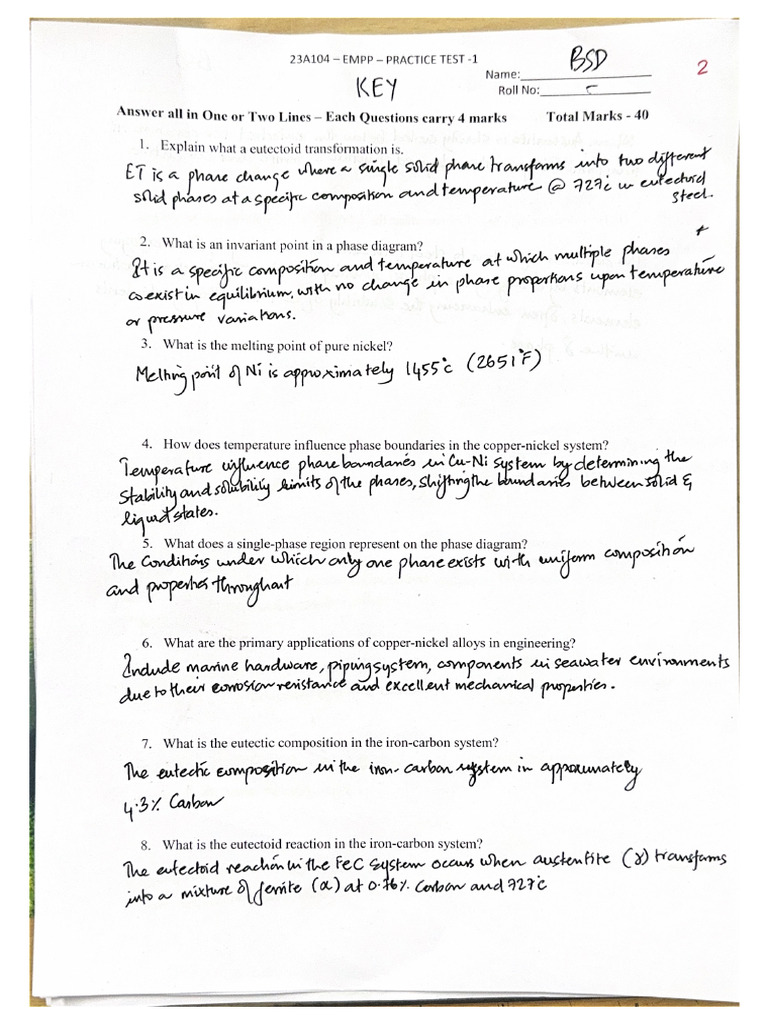 23A104 – EMPP – PRACTICE TEST -1
BSD
2
KEY
Name:
Roll No:
Answer all in One or Two Lines – Each Questions carry 4 marks Total Marks - 40
1. Explain what a eutectoid transformation is.
ET is a phase change where a single solid phase transforms into two different
solid phases at a specific composition and temperature @ 727°c in eutectoid
steel.
2. What is an invariant point in a phase diagram?
It is a specific composition and temperature at which multiple phases
coexist in equilibrium, with no change in phase proportions upon temperature
or pressure variations.
3. What is the melting point of pure nickel?
Melting point of Ni is approximately 1455°c (2651°F)
4. How does temperature influence phase boundaries in the copper-nickel system?
Temperature influence phase boundaries in Cu-Ni system by determining the
stability and solubility limits of the phases, shifting the boundaries between solid &
liquid states.
5. What does a single-phase region represent on the phase diagram?
The conditions under which only one phase exists with uniform composition
and properties throughout
6. What are the primary applications of copper-nickel alloys in engineering?
Include marine hardware, piping system, components in seawater environments
due to their corrosion resistance and excellent mechanical properties.
7. What is the eutectic composition in the iron-carbon system?
The eutectic composition in the iron-carbon system in approximately
4.3% Carbon
8. What is the eutectoid reaction in the iron-carbon system?
The eutectoid reaction in the FeC system occurs when austentite (γ) transforms
into a mixture of ferrite (α) at 0.76% Carbon and 727°c